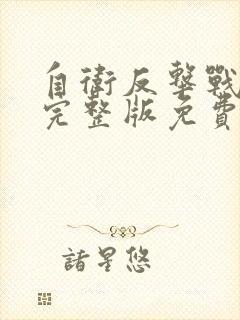 自衛反擊戰
完整版免費
諸星悠